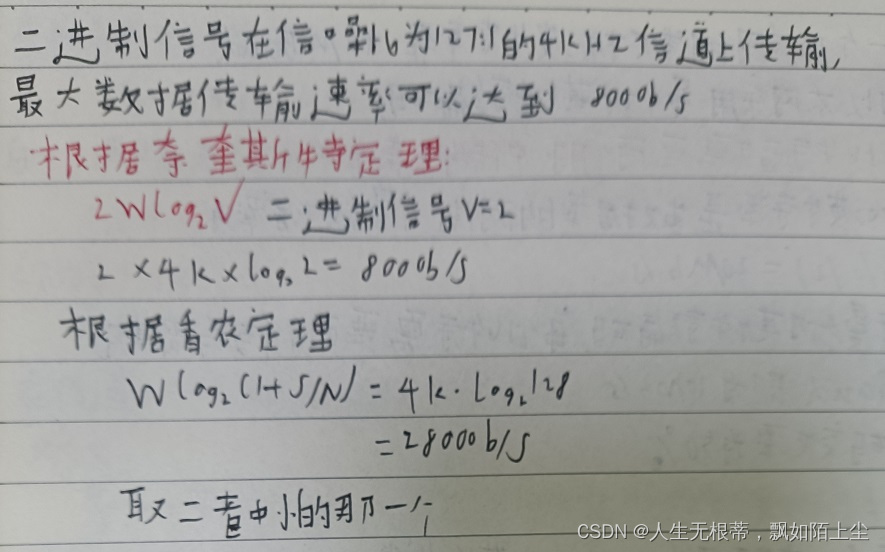 二进制信号在信噪比为127:1的4kHZ信道上传输,
最大数据传输速率可以达到 8000b/s
根据奈奎斯特定理:
2Wlog₂V 二进制信号V=2
2×4k×log₂2= 8000b/s
根据香农定理
Wlog₂(1+S/N) = 4k·log₂128
=28000b/s
取二者中小的那一个
CSDN @人生无根蒂,飘如陌上尘